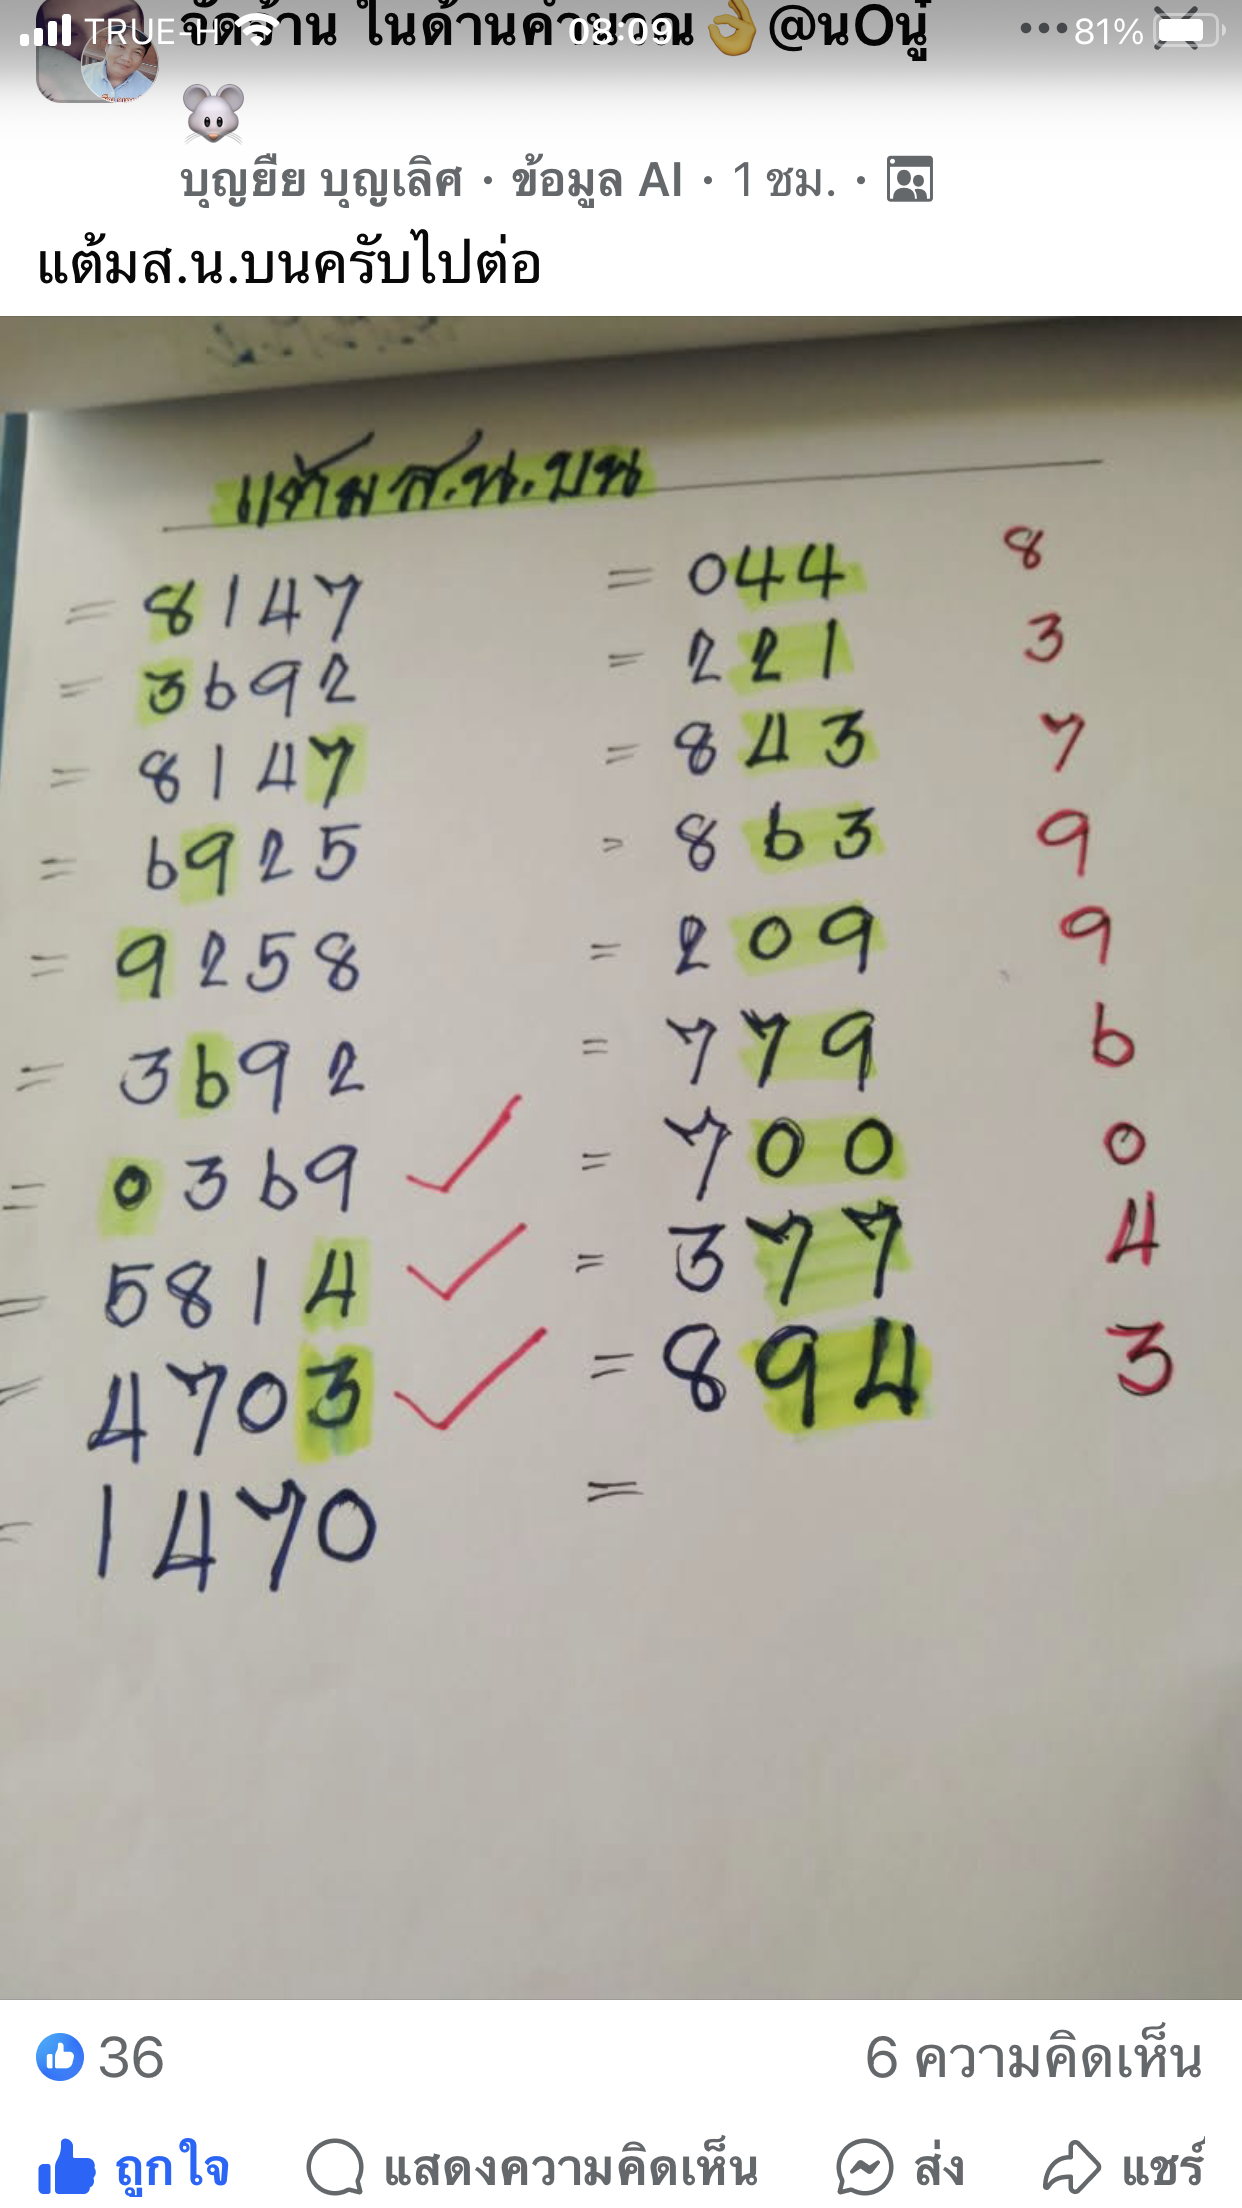 TRUE-H 08:09 81%
จัดร้าน ในด้านคำนวณ👌@นOนู๋
🐭
บุญยืย บุญเลิศ · ข้อมูล AI · 1 ชม. ·
แต้มส.น.บนครับไปต่อ
แต้มส.น.บน
= 8147 = 044 8
= 3692 = 221 3
= 8147 = 843 7
= 6925 = 863 9
= 9258 = 209 9
= 3692 = 779 6
= 0369 ✓ = 700 0
= 5814 ✓ = 377 4
= 4703 ✓ = 894 3
= 1470 =
36 6 ความคิดเห็น
ถูกใจ แสดงความคิดเห็น ส่ง แชร์